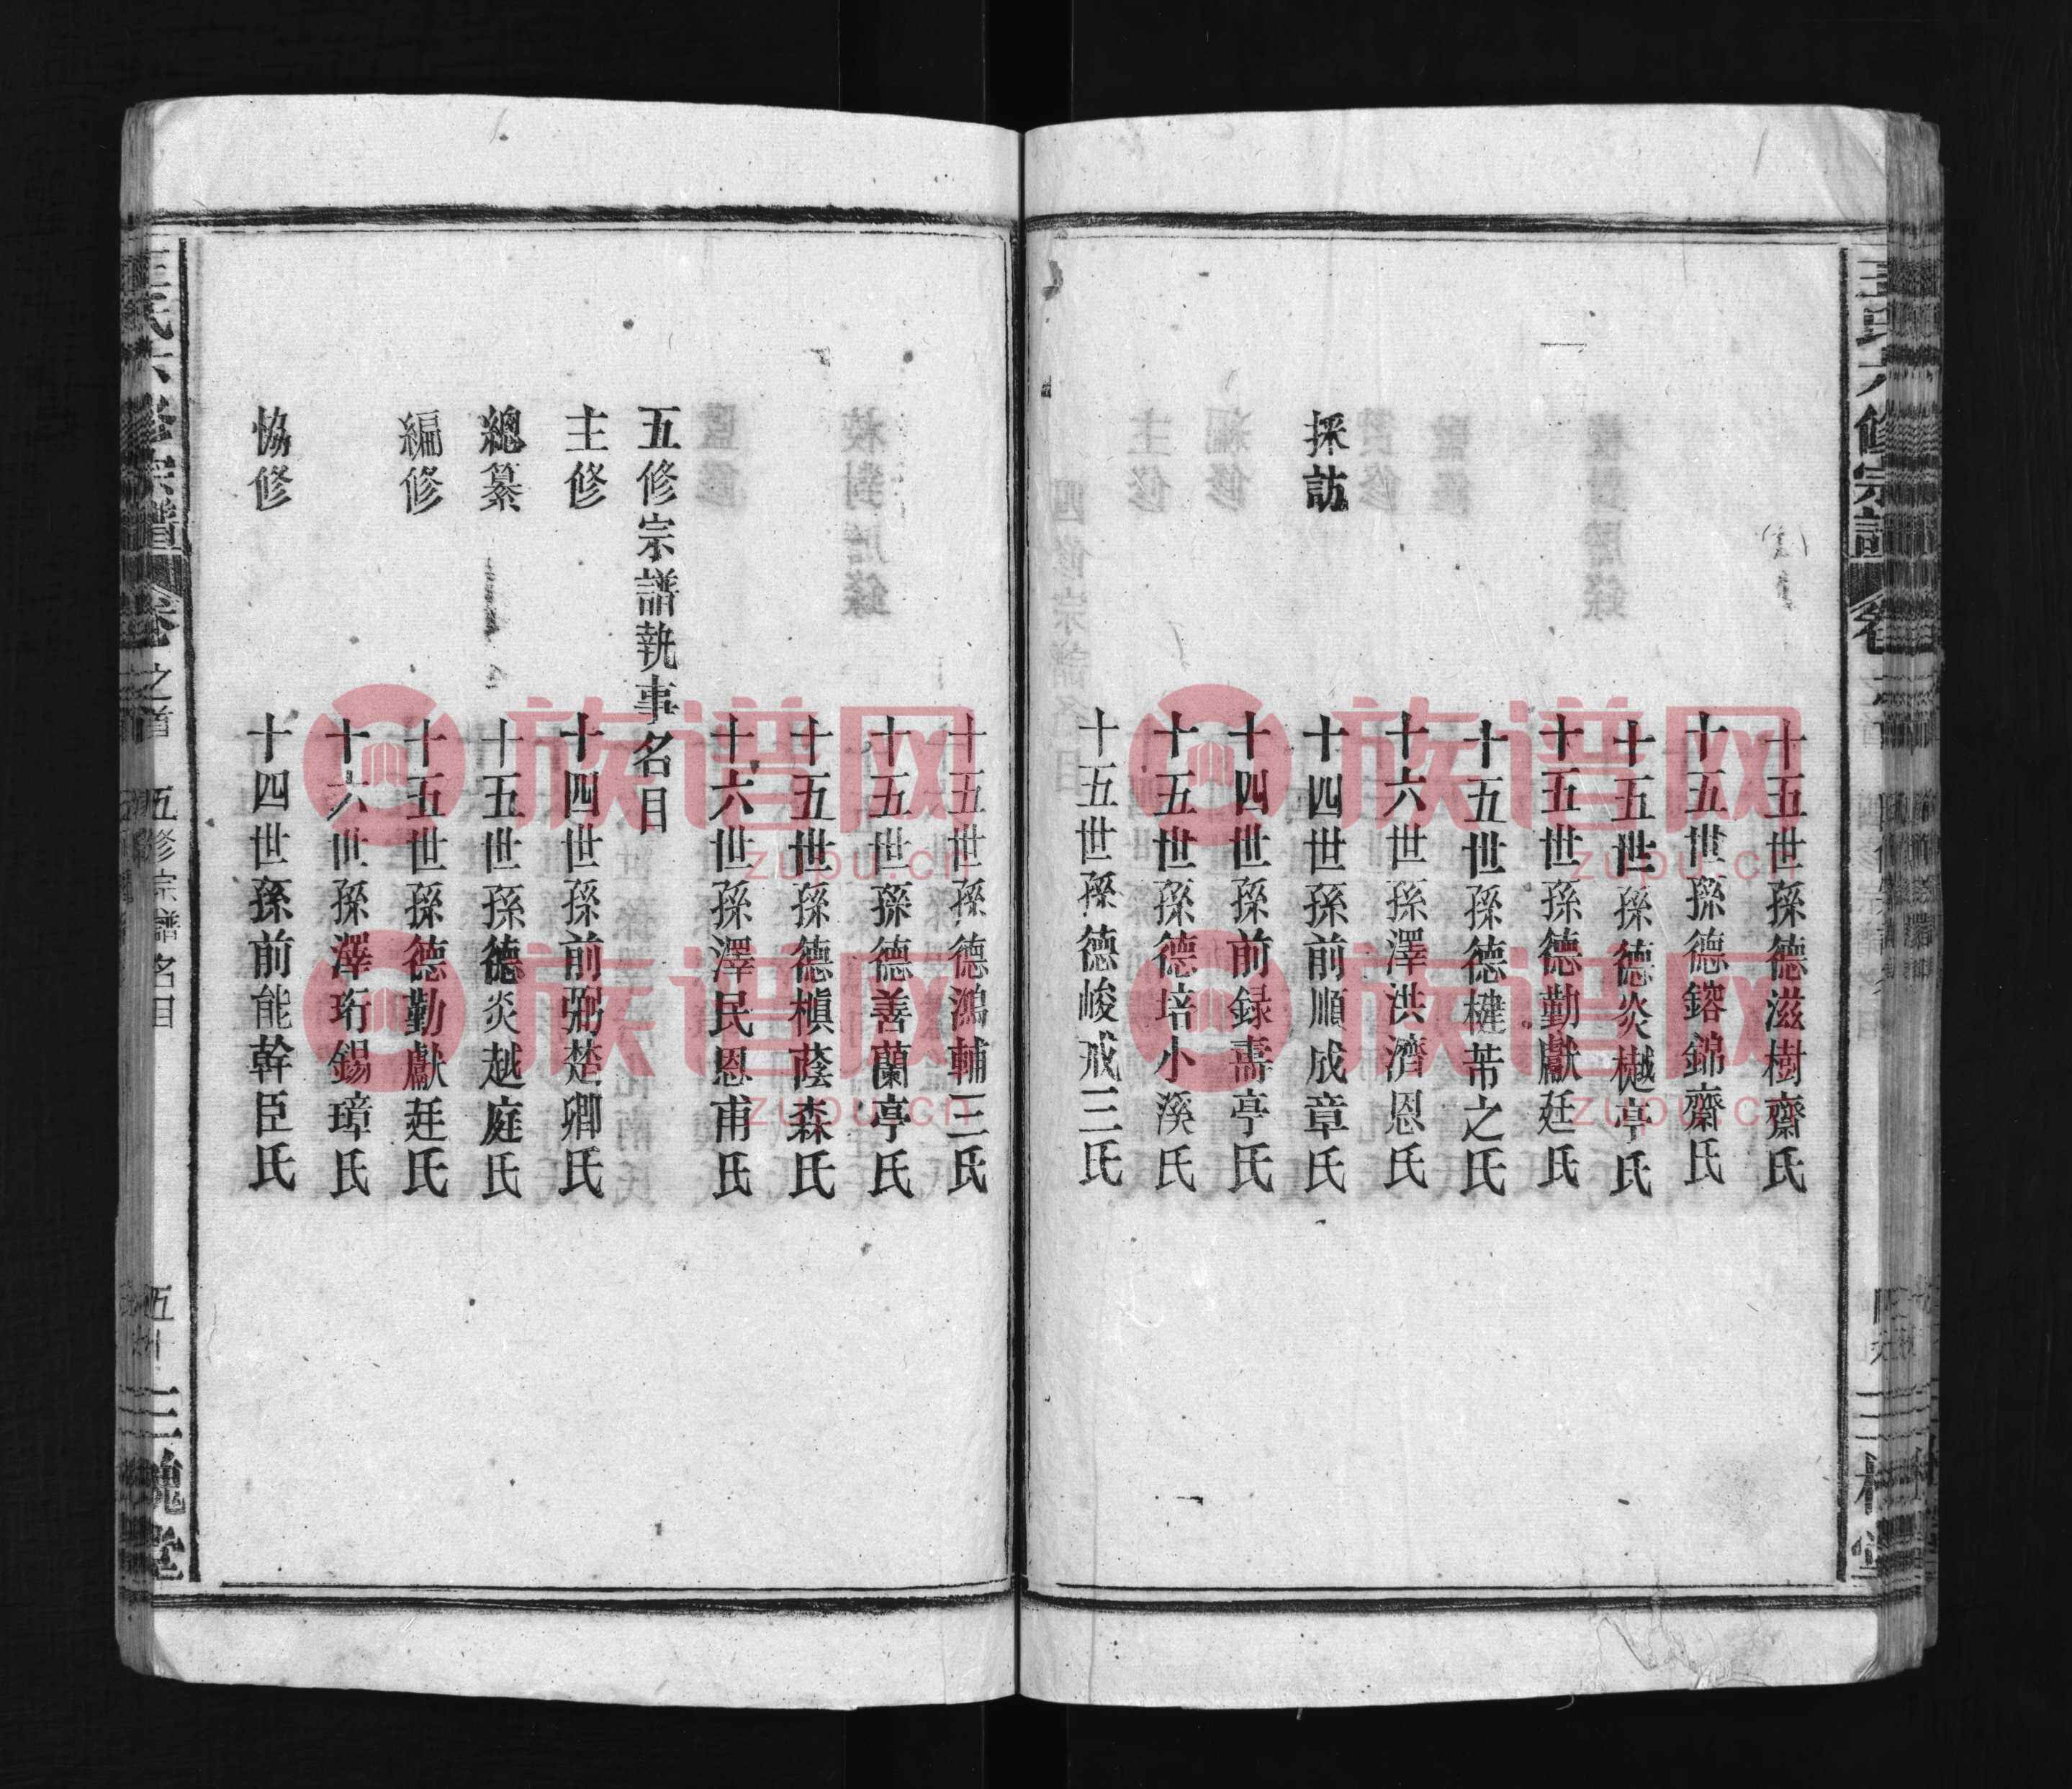 十五世孫德滋樹齋氏
十五世孫德鎔錦齋氏
十五世孫德炎樾亭氏
十五世孫德勤獻廷氏
十五世孫德楗芾之氏
十六世孫澤洪濟恩氏
採訪 十四世孫前順成章氏
十四世孫前録壽亭氏
十五世孫德培小溪氏
十五世孫德峻戒三氏
十五世孫德鴻輔三氏
十五世孫德善蘭亭氏
十五世孫德槙蔭森氏
十六世孫澤民恩甫氏
五修宗譜執事名目
主修 十四世孫前弼楚卿氏
總纂 十五世孫德炎越庭氏
編修 十五世孫德勤獻廷氏
十六世孫澤珩錫璋氏
恊修 十四世孫前能幹臣氏
王氏六修宗譜 卷 之首 五修宗譜名目 五十 三槐堂
族谱网
zupu.cn
族谱网
zupu.cn
族谱网
zupu.cn
族谱网
zupu.cn